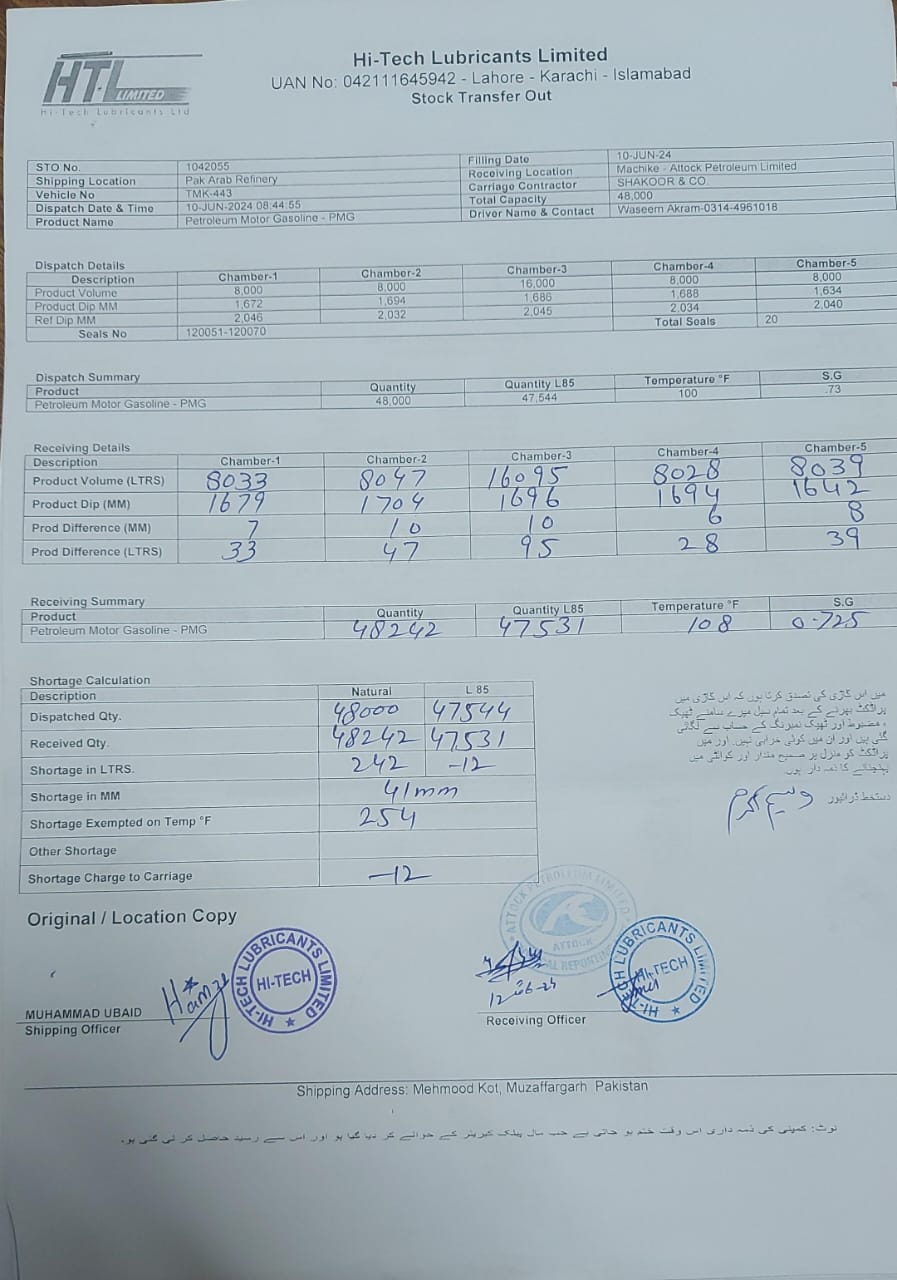 HTL LIMITED
Hi-Tech Lubricants Ltd
Hi-Tech Lubricants Limited
UAN No: 042111645942 - Lahore - Karachi - Islamabad
Stock Transfer Out
STO No. 1042055 Filling Date 10-JUN-24
Shipping Location Pak Arab Refinery Receiving Location Machike - Attock Petroleum Limited
Vehicle No TMK-443 Carriage Contractor SHAKOOR & CO.
Dispatch Date & Time 10-JUN-2024 08:44:55 Total Capacity 48,000
Product Name Petroleum Motor Gasoline - PMG Driver Name & Contact Waseem Akram-0314-4961018
Dispatch Details
Description Chamber-1 Chamber-2 Chamber-3 Chamber-4 Chamber-5
Product Volume 8,000 8,000 16,000 8,000 8,000
Product Dip MM 1,672 1,694 1,686 1,688 1,634
Ref Dip MM 2,046 2,032 2,045 2,034 2,040
Seals No 120051-120070 Total Seals 20
Dispatch Summary
Product Quantity Quantity L85 Temperature °F S.G
Petroleum Motor Gasoline - PMG 48,000 47,544 100 .73
Receiving Details
Description Chamber-1 Chamber-2 Chamber-3 Chamber-4 Chamber-5
Product Volume (LTRS) 8033 8047 16095 8028 8039
Product Dip (MM) 1679 1704 1696 1694 1642
Prod Difference (MM) 7 10 10 6 8
Prod Difference (LTRS) 33 47 95 28 39
Receiving Summary
Product Quantity Quantity L85 Temperature °F S.G
Petroleum Motor Gasoline - PMG 48242 47531 108 0.725
Shortage Calculation
Description Natural L 85
Dispatched Qty. 48000 47544
Received Qty. 48242 47531
Shortage in LTRS. 242 -12
Shortage in MM 41mm
Shortage Exempted on Temp °F 254
Other Shortage
Shortage Charge to Carriage -12
میں اس گاڑی کی تصدیق کرتا ہوں کہ اس گاڑی میں
پراڈکٹ بھرنے کے بعد تمام سیل میرے سامنے ٹھیک
، مضبوط اور ٹھیک نمبرنگ کے حساب سے لگائی
گئی ہیں اور ان میں کوئی خرابی نہیں۔ اور میں
پراڈکٹ کو منزل پر صحیح مقدار اور کوالٹی میں
پہنچانے کا ذمہ دار ہوں۔
دستخط ڈرائیور وسیم اکرم
Original / Location Copy
ATTOCK PETROLEUM LIMITED
ATTOCK
HI-TECH LUBRICANTS LIMITED
HI-TECH
HI-TECH LUBRICANTS LIMITED
HI-TECH
Hamza
MUHAMMAD UBAID
Shipping Officer
Receiving Officer
Shipping Address: Mehmood Kot, Muzaffargarh Pakistan
نوٹ: کمپنی کی ذمہ داری اس وقت ختم ہو جاتی ہے جب مال پبلک کیریئر کے حوالے کر دیا گیا ہو اور اس سے رسید حاصل کر لی گئی ہو۔